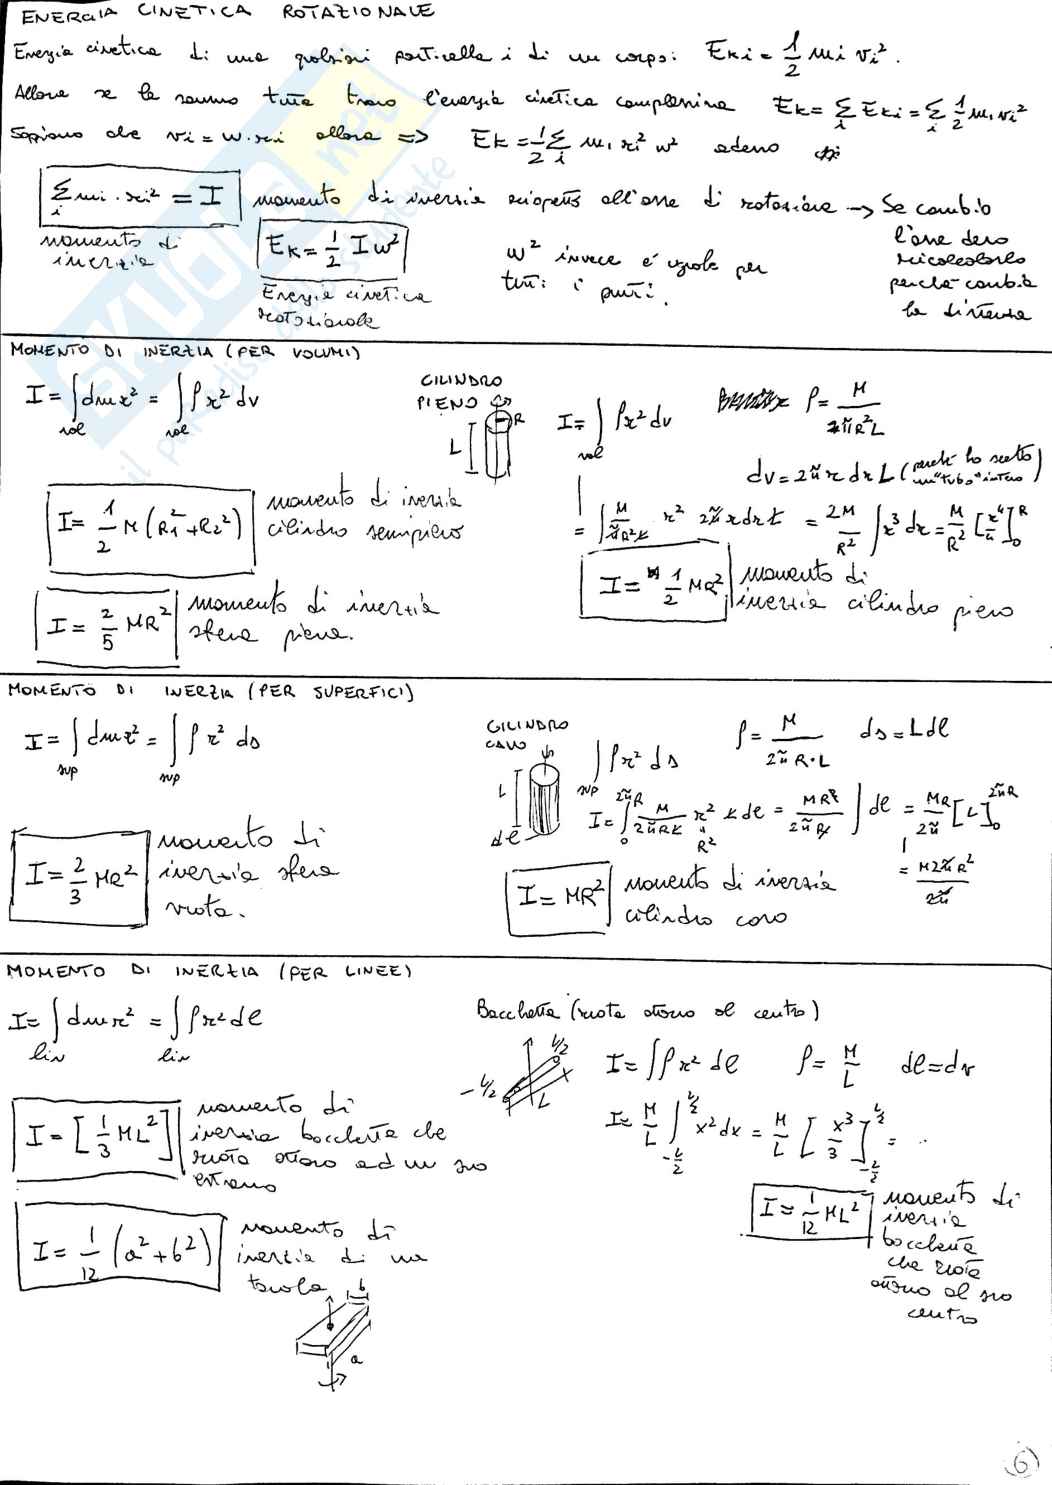 ENERGIA CINETICA ROTAZIONALE
Energia cinetica di una qualsiasi particella i di un corpo: Eki = 1/2 mi vi².
Allora se le sommo tutte trovo l'energia cinetica complessiva Ek = Σi Eki = Σi 1/2 mi vi²
Sappiamo che vi = w·ri allora => Ek = 1/2 Σi mi ri² w² adesso
Σi mi · ri² = I momento di inerzia rispetto all'asse di rotazione → Se cambio
l'asse devo
ricalcolarlo
perché cambia
la distanza
momento di
inerzia
Ek = 1/2 I w²
Energia cinetica
rotazionale
w² invece è uguale per
tutti i punti.
MOMENTO DI INERZIA (PER VOLUMI)
I = ∫vol dm r² = ∫vol ρ r² dv
CILINDRO
PIENO
R
L
I = ∫vol ρ r² dv
ρ= M / π R² L
dv = 2π r dr L (perché ho scelto
un "tubo" intero)
= ∫ M/πR²L r² 2π r dr L = 2M/R² ∫ r³ dr = M/R² [r⁴/4]₀ᴿ
I = 1/2 M (R1² + R2²) momento di inerzia
cilindro semipieno
I = 1/2 MR² momento di
inerzia cilindro pieno
I = 2/5 MR² momento di inerzia
sfera piena.
MOMENTO DI INERZIA (PER SUPERFICI)
I = ∫sup dm r² = ∫sup ρ r² ds
CILINDRO
CAVO
L
dl
∫sup ρ r² ds
ρ = M / 2π R·L ds = L dl
I = ∫₀^2πR M/2πRL r² L dl = MR²/2πR ∫ dl = MR/2π [L]₀^2πR
R²
= M2πR²/2π
I = 2/3 MR² momento di
inerzia sfera
vuota.
I = MR² momento di inerzia
cilindro cavo
MOMENTO DI INERZIA (PER LINEE)
I = ∫lin dm r² = ∫lin ρ r² dl
Bacchetta (ruota attorno al centro)
L/2
-L/2
x
L
I = ∫ρ r² dl ρ = M/L dl = dr
I = M/L ∫ x² dx = M/L [x³/3] = ..
L/2
-L/2
I = [1/3 ML²] momento di
inerzia bacchetta che
ruota attorno ad un suo
estremo
I = 1/12 ML² momento di
inerzia
bacchetta
che ruota
attorno al suo
centro
I = 1/12 (a² + b²) momento di
inerzia di una
tavola
b
a
6
SKUOLA.net
il paradiso dello studente